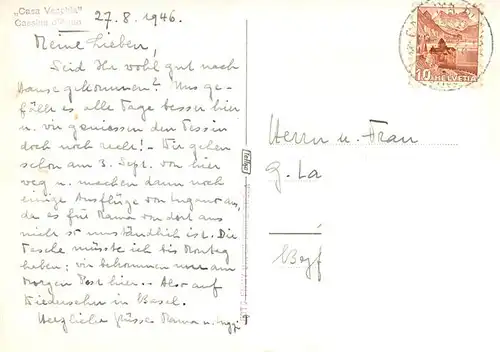 „Casa Vecchia"
Cassina d'Agno
27.8.1946.
Meine Lieben,
Seid Ihr wohl gut nach
Hause gekommen? Uns ge-
fällt es alle Tage besser hier
u. wir geniessen den Tessin
doch noch recht! - Wir gehen
schon am 3. Sept. von hier
weg u. machen dann noch
einige Ausflüge von Lugano aus,
da es für Mama von dort aus
nicht so umständlich ist. Die
Tasche müsste ich bis Montag
haben; wir bekommen nur am
Morgen Post hier.. Also auf
Wiedersehen in Basel.
Herzliche Grüsse Mama u.
10 HELVETIA
Herrn u. Frau
G. La